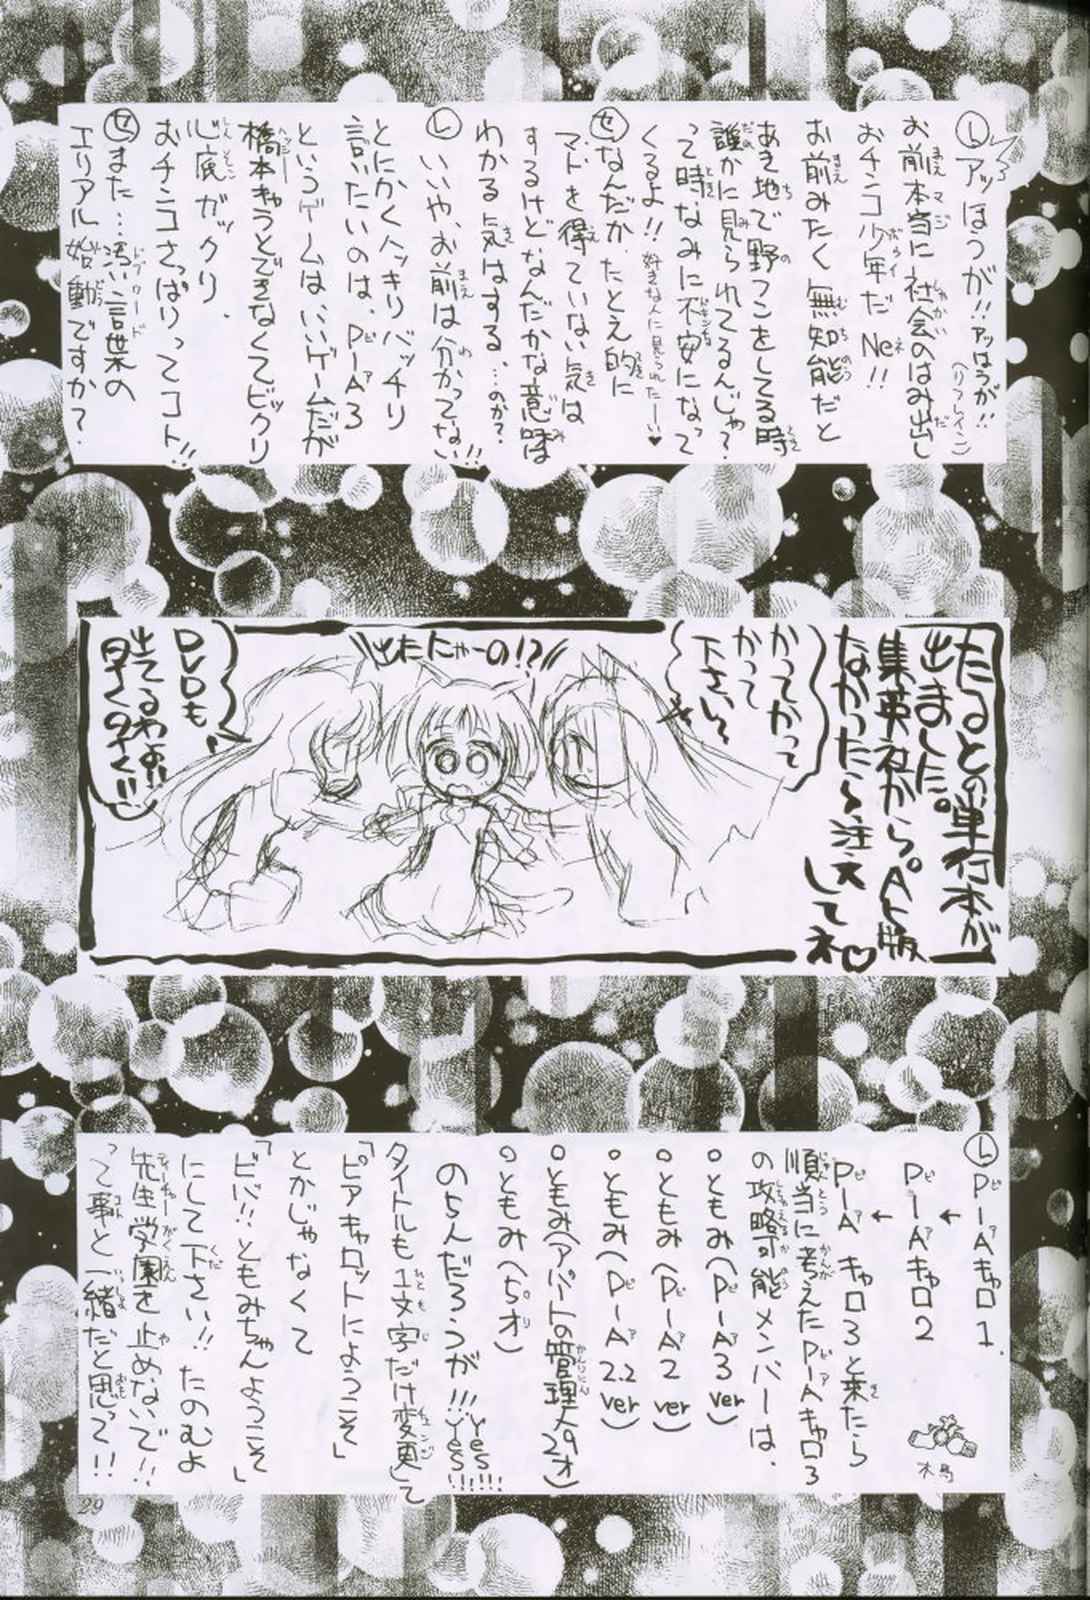 Ⓛアッほうが!!アッほうが!!
(リフレイン)
お前本当に社会のはみ出し
おチンコ少年だNe!!
お前みたく無知能だと
あき地で野フンをしてる時
誰かに見られてるんじゃ?
って時なみに不安になって
くるよ!!好きな人に見られたーい♥
せなんだか、たとえ的に
マトを得ていない気は
するけどなんだかな意味は
わかる気はする…のか?
Ⓛいいや、お前は分かってない!!
とにかくハッキリバッチリ
言いたいのは、Pーア3
というゲームは、いいゲームだが
橋本きゃうとできなくてビックリ
心底ガックリ、
おチンコさっぱりってコト!!
せまた…汚い言葉の
エリアル始動ですか?
たるとの単行本が
出ました。
集英社から。A5版
なかったら〜注文
してネ♡
かってかって
かって
下さい〜
出たにゃーの!?
DVDも
出てるわよ!!
早く早く!!
ⓁPーAキャロ1.
↓
PーAキャロ2
↓
PーAキャロ3と来たら
順当に考えたPーAキャロ3
の攻略可能メンバーは、
○ともみ(PーA3ver)
○ともみ(PーA2ver)
○ともみ(PーA2.2ver)
○ともみ(アパートの管理人29才)
○ともみ(5才)
のらんだろうが!!!Yes Yes!!!!!!
タイトルも1文字だけ変更して
「ピアキャロットにようこそ」
とかじゃなくて
「ビバ!!ともみちゃんようこそ」
にして下さい!!たのむよ
先生学園を止めないで!!
って事と一緒だと思って!!
29